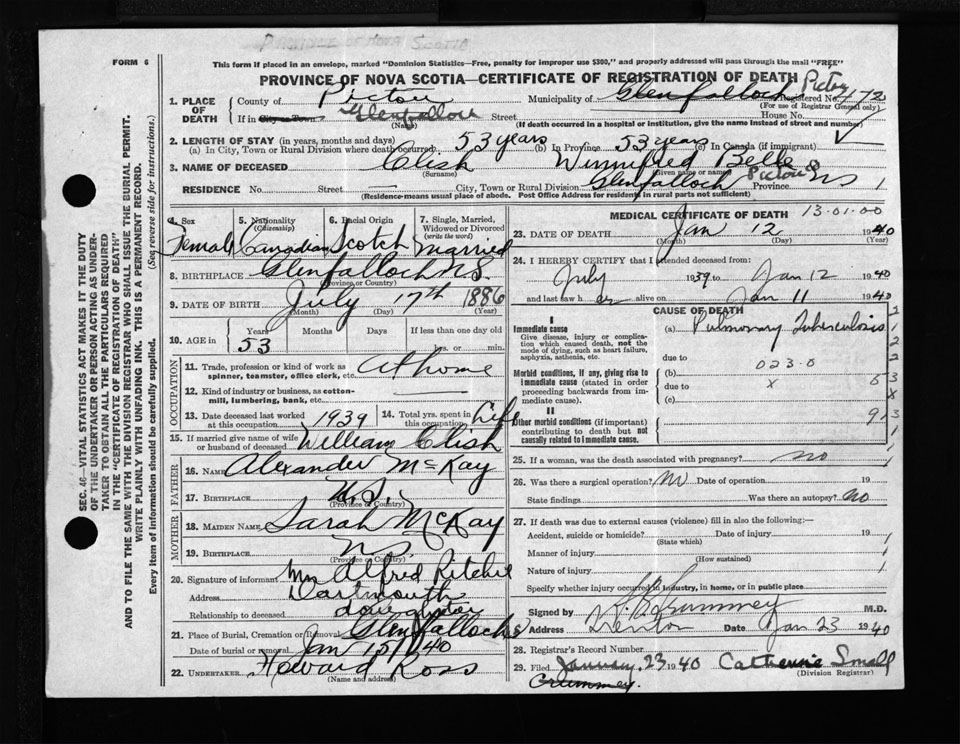 PROVINCE OF NOVA SCOTIA
FORM 6
This form if placed in an envelope, marked "Dominion Statistics—Free, penalty for improper use $300," and properly addressed will pass through the mail "FREE"
PROVINCE OF NOVA SCOTIA—CERTIFICATE OF REGISTRATION OF DEATH
1. PLACE OF DEATH County of Pictou Municipality of Glenfalloch Pictou Registered No. 172
(For use of Registrar General only)
If in City or Town Glenfalloch Street House No.
(Name) (If death occurred in a hospital or institution, give the name instead of street and number)
2. LENGTH OF STAY (in years, months and days)
(a) In City, Town or Rural Division where death occurred 53 years (b) In Province 53 years (c) In Canada (if immigrant)
3. NAME OF DECEASED Clish Winnifred Belle
(Surname) (Given name or names)
RESIDENCE No. Street — City, Town or Rural Division Glenfalloch Pictou Province NS 1
(Residence means usual place of abode. Post Office Address for residents in rural parts not sufficient)
4. Sex Female
5. Nationality (Citizenship) Canadian
6. Racial Origin Scotch
7. Single, Married, Widowed or Divorced (write the word) Married
8. BIRTHPLACE Glenfalloch NS
(Province or Country)
9. DATE OF BIRTH July 17th 1886
(Month) (Day) (Year)
10. AGE in Years 53 Months Days If less than one day old
hrs. or min.
OCCUPATION
11. Trade, profession or kind of work as spinner, teamster, office clerk, etc. At home
12. Kind of industry or business, as cotton-mill, lumbering, bank, etc. —
13. Date deceased last worked at this occupation 1939
14. Total yrs. spent in this occupation Life
15. If married give name of wife or husband of deceased William Clish
FATHER
16. NAME Alexander McKay
17. BIRTHPLACE N.S.
(Province or Country)
MOTHER
18. MAIDEN NAME Sarah McKay
19. BIRTHPLACE N.S.
(Province or Country)
20. Signature of informant Mrs Alfred Ritchie
Address Dartmouth
Relationship to deceased daughter
21. Place of Burial, Cremation or Removal Glenfalloch
Date of burial or removal Jan 15/40
22. UNDERTAKER Howard Ross
(Name and address)
MEDICAL CERTIFICATE OF DEATH 13.01.00
23. DATE OF DEATH Jan 12 1940
(Month) (Day) (Year)
24. I HEREBY CERTIFY that I attended deceased from:
July 1939 to Jan 12 1940
and last saw her alive on Jan 11 1940
CAUSE OF DEATH
I
Immediate cause
Give disease, injury or complication which caused death, not the mode of dying, such as heart failure, asphyxia, asthenia, etc.
(a) Pulmonary Tuberculosis
due to
023.0
Morbid conditions, if any, giving rise to immediate cause (stated in order proceeding backwards from immediate cause).
(b) x
due to
(c)
II
Other morbid conditions (if important) contributing to death but not causally related to immediate cause.
25. If a woman, was the death associated with pregnancy? no
26. Was there a surgical operation? No Date of operation 19
State findings Was there an autopsy? No
27. If death was due to external causes (violence) fill in also the following:—
Accident, suicide or homicide? Date of injury 19
(State which)
Manner of injury
(How sustained)
Nature of injury
Specify whether injury occurred in industry, in home, or in public place
Signed by M.D.
Address Trenton Date Jan 23 1940
28. Registrar's Record Number
29. Filed January 23 1940 Catherine Small
(Division Registrar)
SEC. 46—VITAL STATISTICS ACT MAKES IT THE DUTY
OF THE UNDERTAKER OR PERSON ACTING AS UNDER-
TAKER TO OBTAIN ALL THE PARTICULARS REQUIRED
IN THE "CERTIFICATE OF REGISTRATION OF DEATH"
AND TO FILE THE SAME WITH THE DIVISION REGISTRAR WHO SHALL ISSUE THE BURIAL PERMIT.
WRITE PLAINLY WITH UNFADING INK. THIS IS A PERMANENT RECORD.
Every item of information should be carefully supplied. (See reverse side for instructions.)